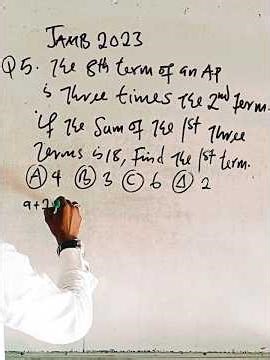 JAMB 2023
Q5. The 8th term of an AP
is Three times The 2nd Term.
If The Sum of The 1st Three
Terms is 18, Find The 1st term.
(A) 4 (B) 3 (C) 6 (D) 2
a+7